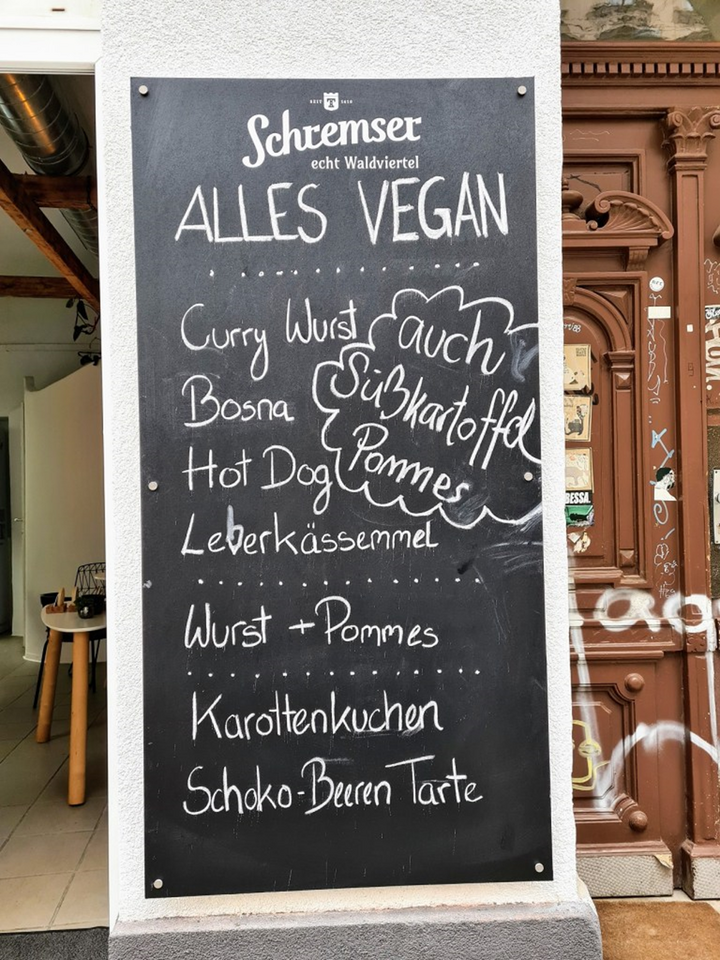 SEIT T 1410
Schremser
echt Waldviertel
ALLES VEGAN
Curry Wurst
Bosna
Hot Dog
Leberkässemmel
auch
Süßkartoffel
Pommes
Wurst + Pommes
Karottenkuchen
Schoko-Beeren Tarte
BESSA.